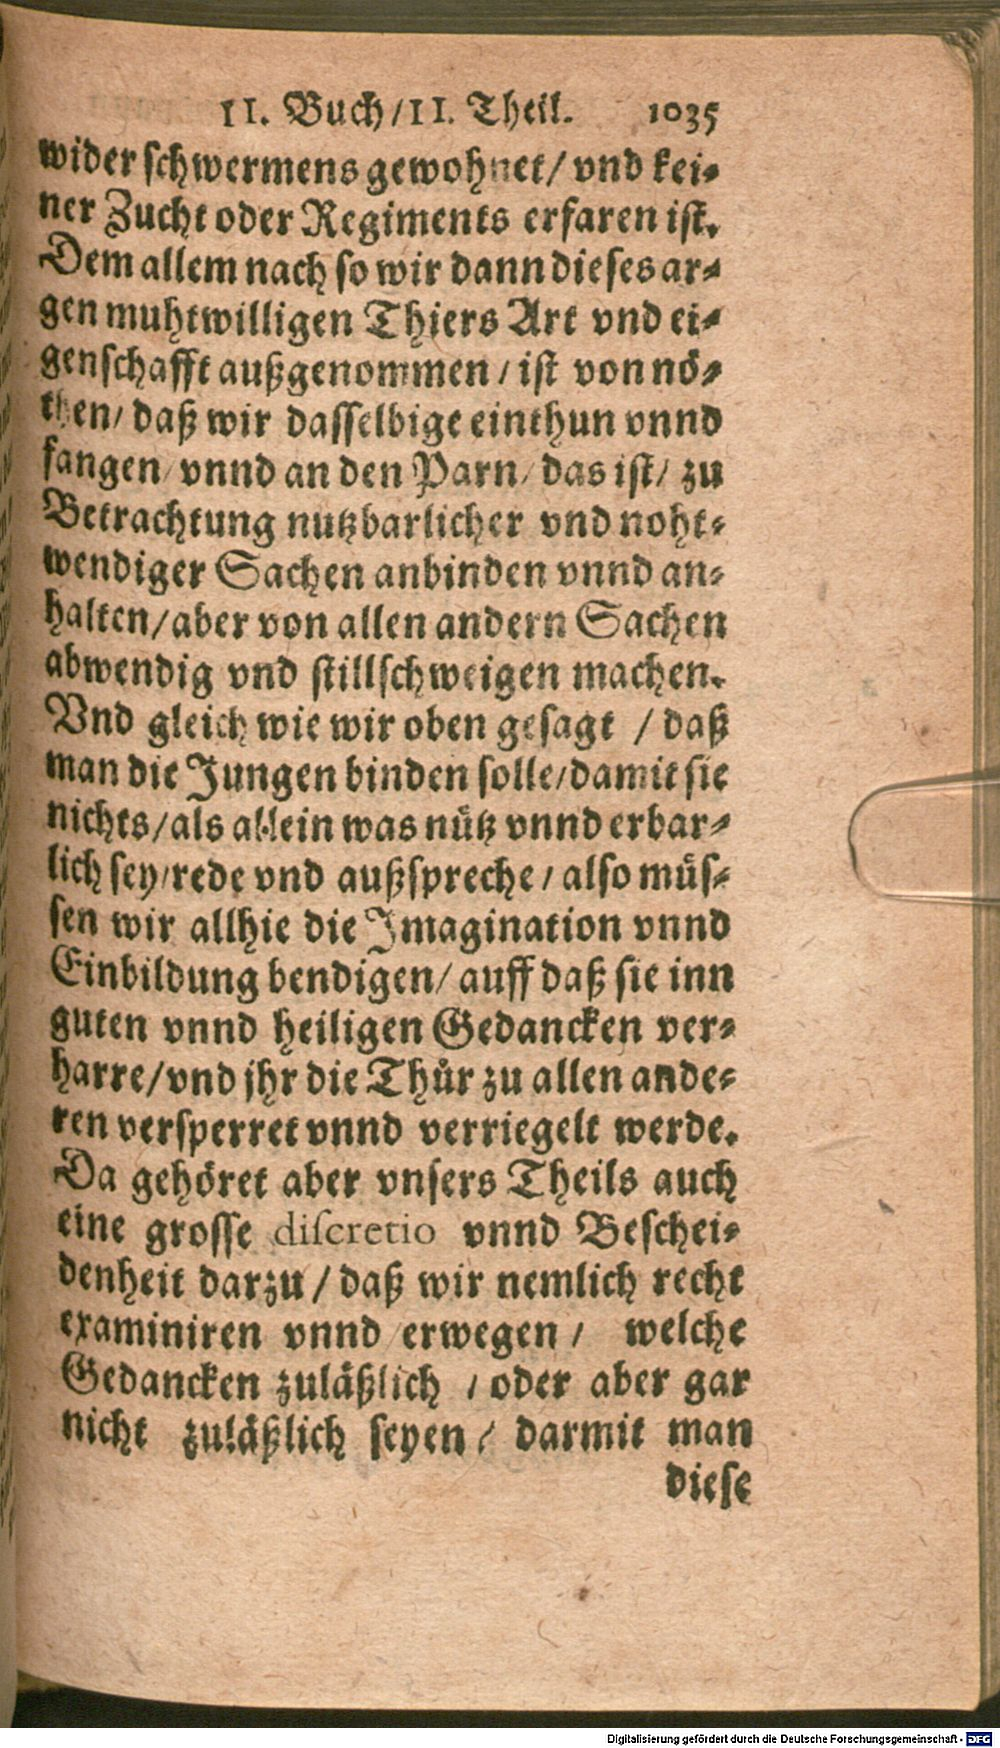 II. Buch/II. Theil. 1035
wider schwermens gewohnet/ vnd kei-
ner Zucht oder Regiments erfaren ist.
Dem allem nach so wir dann dieses ar-
gen muhtwilligen Thiers Art vnd ei-
genschafft außgenommen/ ist von nö-
then/ daß wir dasselbige einthun vnnd
fangen/ vnnd an den Parn/ das ist/ zu
Betrachtung nutzbarlicher vnd noht-
wendiger Sachen anbinden vnnd an-
halten/ aber von allen andern Sachen
abwendig vnd stillschweigen machen.
Vnd gleich wie wir oben gesagt / daß
man die Jungen binden solle/ damit sie
nichts/ als allein was nütz vnnd erbar-
lich sey/ rede vnd außspreche/ also müs-
sen wir allhie die Imagination vnnd
Einbildung bendigen/ auff daß sie inn
guten vnnd heiligen Gedancken ver-
harre/ vnd jhr die Thür zu allen ande-
ren versperret vnnd verriegelt werde.
Da gehöret aber vnsers Theils auch
eine grosse discretio vnnd Beschei-
denheit darzu/ daß wir nemlich recht
examiniren vnnd erwegen/ welche
Gedancken zuläßlich / oder aber gar
nicht zuläßlich seyen/ darmit man
diese
Digitalisierung gefördert durch die Deutsche Forschungsgemeinschaft - DFG